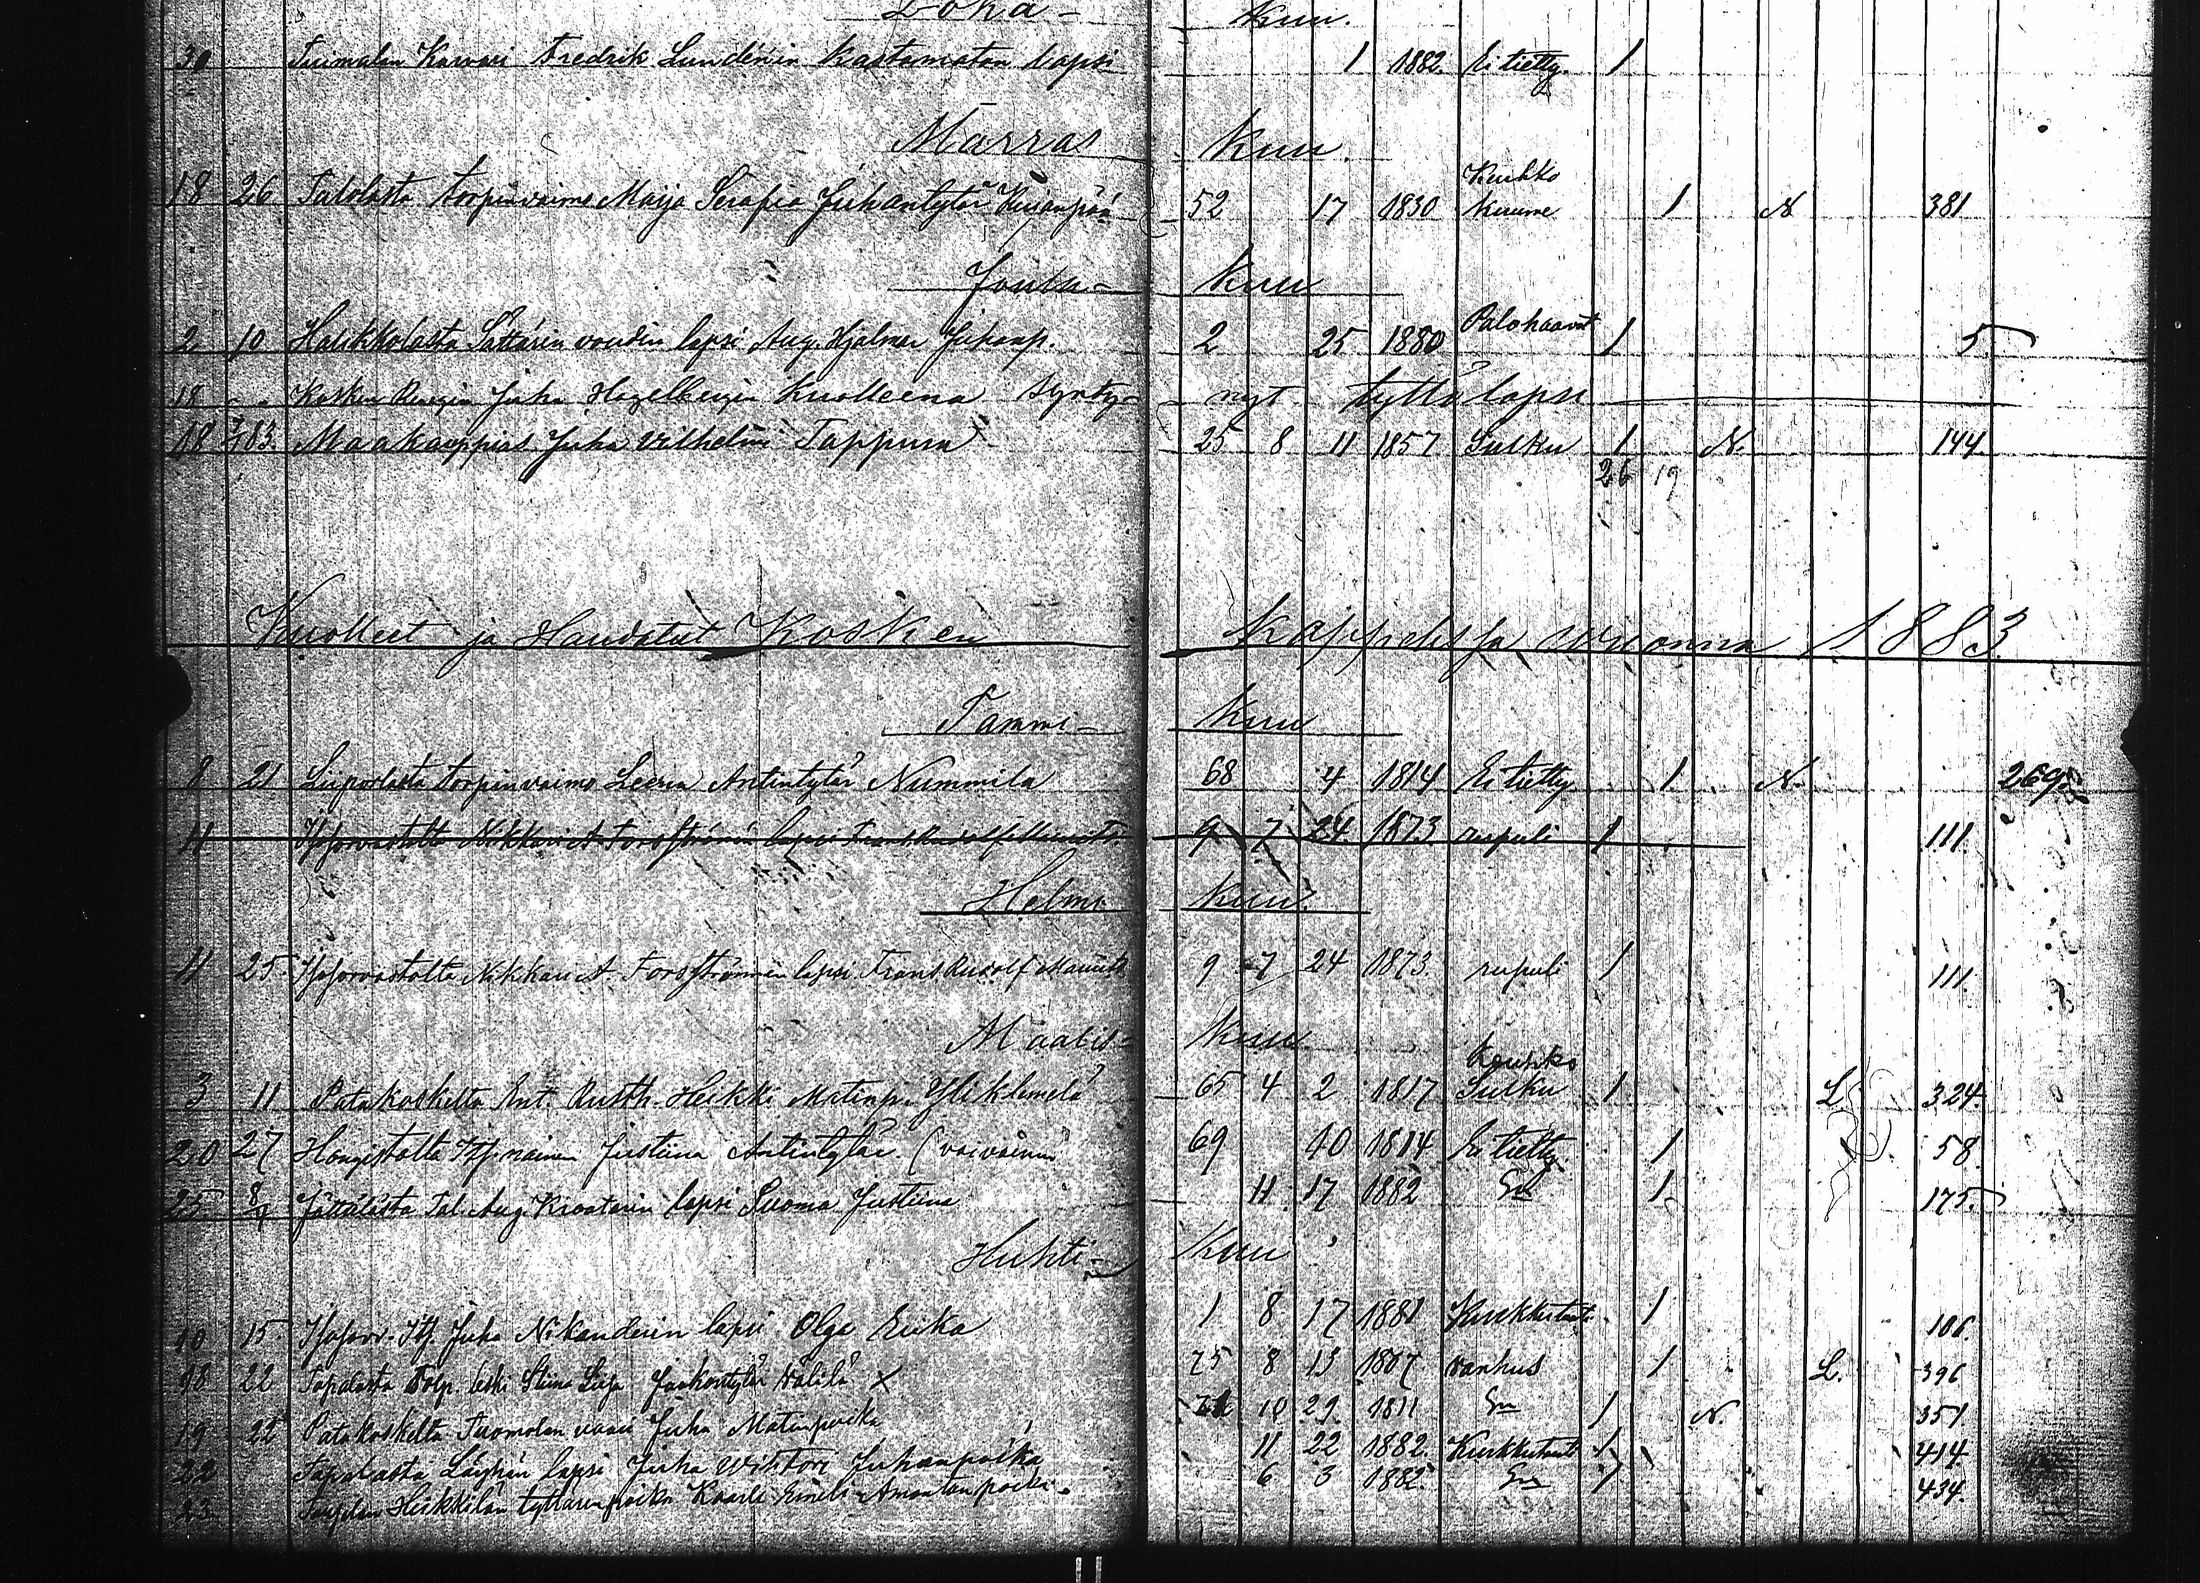 Loka- kuu.
30 Karvari Fredrik Lundénin kastamaton lapsi 1 1882. Ei tietty. 1
Marras kuu.
Keuhko
18 26 Talolasta torpinvaimo Maija Serafia Juhantytär 52 17 1830 kuume 1 N 381
Joulu- kuu
2 10 Halikkolasta voudin lapsi Aug. Hjalmar Juhanp. 2 25 1880 Palohaavat 1 5
18 - - Kosken Juha Hagelbergin kuolleena synty- nyt tyttö lapsi
18 7/1 83. Maakauppias Juha Vilhelmi Tappura 25 8 11 1857 Sulku 1 N. 144.
26 19
Kuolleet ja Haudatut Kosken kappelissa wuonna 1883.
Tammi- kuu
8 21 Liipolasta torpinvaimo Leena Antintytär Nummila 68 4 1814 Ei tietty 1 N. 269
11 Nikkari A. Forsströmin lapsi Frans Rudolf 9 7 24. 1873 rupuli 1 111.
Helmi kuu.
11 25. Nikkari A. Forsströmin lapsi Frans Rudolf 9 7 24 1873. rupuli 1 111.
Maalis- kuu
Keuhko
3 11 Patakoskelta Ent. Rusth. Heikki Matinp. Yliklemelä 65 4 2 1817 Sulku 1 L 324.
20 27 Hongistolta Its. nainen Justiina Antintytär. (vaivainen) 69 10 1814 Ei tietty. 1 58
25 8/4 Tal. Aug. lapsi Suoma Justiina 11 17 1882 1 175.
Huhti- kuu
10 15 Its. Juha Nikanderin lapsi Olga Eerika 1 8 17 1881 1 106
18 22 Tapalasta Torp. leski Stiina Liisa Jaakontytär Wälilä x 75 8 13 1807 vanhus 1 L. 396
19 22 Patakoskelta Tuomolan vaari Juha Matinpoika 71 10 29. 1811 1 N. 351
22 Tapalasta lapsi Juha Wihtori Juhanpoika 11 22 1882. 1 414
23 Heikkilän tyttären poika Kaarle Eemeli Amantanpoika. 6 3 1882. 1 434.